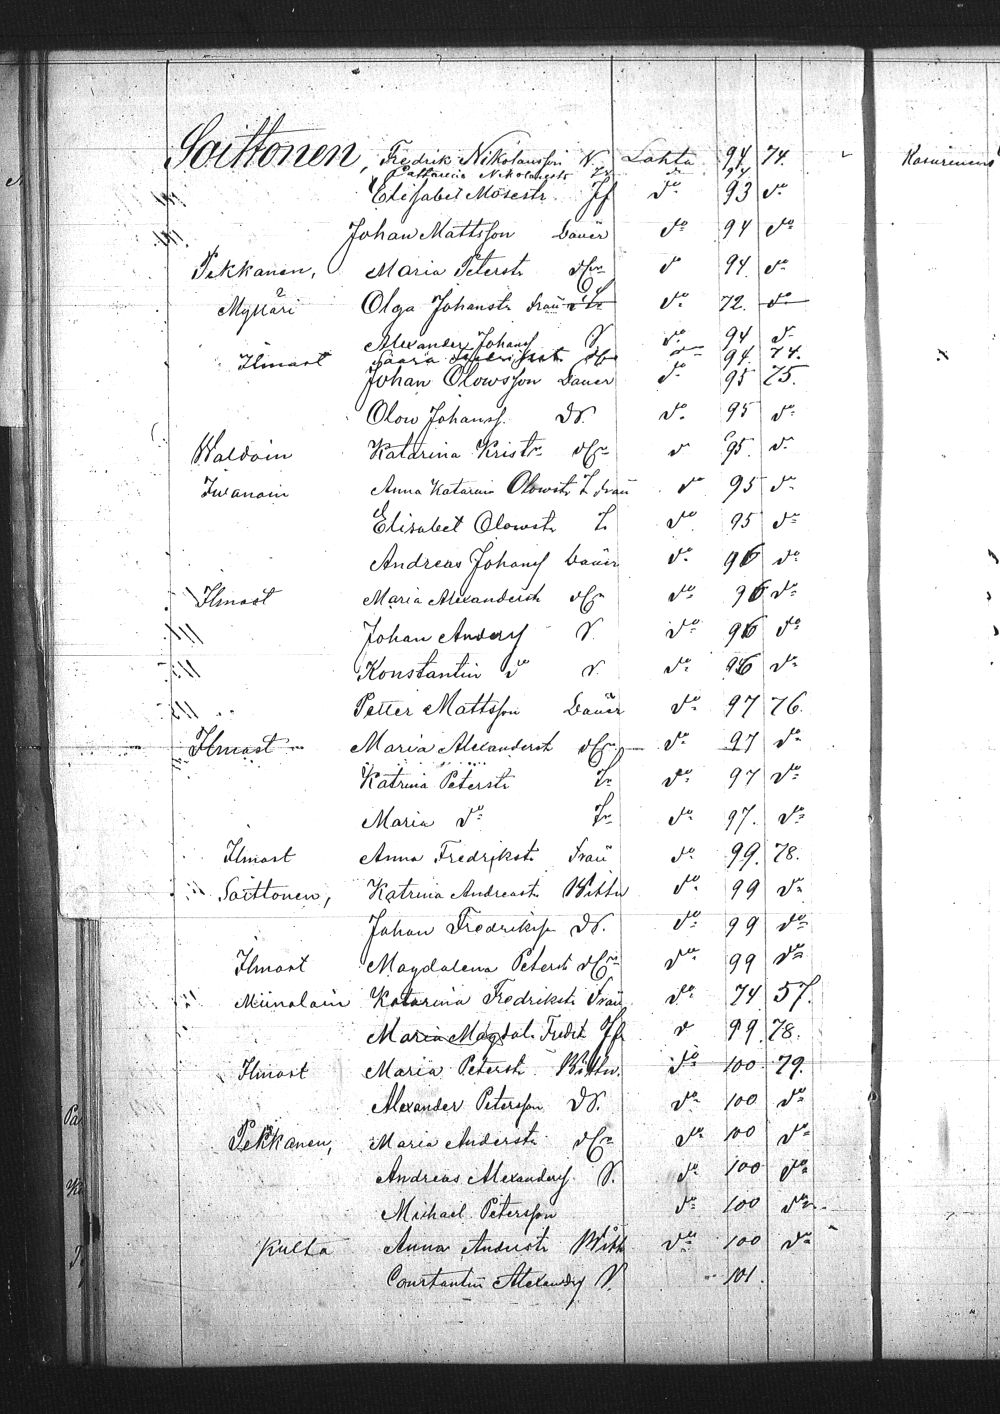 Soittonen, Fredrik Nikolausson S. Lahta 94 74.
Catharina Nikolausdr Tr do 94
Elisabet Mosesdr. Jf do 93 do
Johan Mattsson Bauer do 94 do
Pekkanen, Maria Petersdr dEm do 94 do
Mykkäri Olga Johansdr. Frau do 72. do
Alexander Johanss S. do 94 do
Ilmast Saara Fredriksdr. dEm do 94. 74.
Johan Olowsson Bauer do 95 75.
Olow Johanss. dS. do 95 do
Waldoin Katarina Kristr dEm do 95. do
Iwanain Anna Katarina Olowstr T. Frau do 95 do
Elisabet Olowstr T. do 95 do
Andreas Johanss Bauer do 96 do
Ilmast Maria Alexanderstr dEm do 96 do
Johan Anderss S. do 96 do
Konstantin do S. do 96 do
Petter Mattsson Bauer do 97 76.
Ilmast Maria Alexanderstr dEm do 97 do
Katrina Peterstr Tr do 97 do
Maria do Tr do 97. do
Ilmast Anna Fredrikstr. Frau do 99. 78.
Soittonen, Katrina Andreastr. Wittw do 99 do
Johan Fredrikss dS. do 99 do
Ilmast Magdalena Peterstr dEm do 99 do
Miinalain Katarina Fredrikstr Frau do 74 57.
Maria Magdal. Fredr Jf do 99. 78.
Ilmast Maria Peterstr. Wittw. do 100 79.
Alexander Petersson dS. do 100 do
Pekkanen, Maria Anderstr dEm do 100 do
Andreas Alexanders S. do 100 do
Michael Petersson do 100 do
Kulta Anna Anderstr Wittw do 100 do
Constantin Alexanders S. 101.
Kasurinens